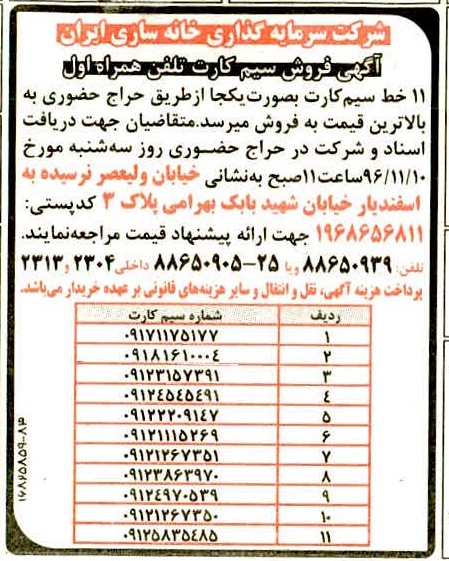 شرکت سرمایه گذاری خانه سازی ایران
آگهی فروش سیم کارت تلفن همراه اول
۱۱ خط سیم کارت بصورت یکجا از طریق حراج حضوری به
بالاترین قیمت به فروش میرسد.متقاضیان جهت دریافت
اسناد و شرکت در حراج حضوری روز سه‌شنبه مورخ
۹۶/۱۱/۱۰ساعت۱۱صبح به‌نشانی خیابان ولیعصر نرسیده به
اسفندیار خیابان شهید بابک بهرامی پلاک ۳ کدپستی:
۱۹۶۸۶۵۶۸۱۱ جهت ارائه پیشنهاد قیمت مراجعه‌نمایند.
تلفن: ۸۸۶۵۰۹۳۹ ویا ۲۵-۸۸۶۵۰۹۰۵ داخلی ۲۳۰۴ و ۲۳۱۳
پرداخت هزینه آگهی، نقل و انتقال و سایر هزینه‌های قانونی بر عهده خریدار می‌باشد.
ردیف شماره سیم کارت
۱ ۰۹۱۷۱۱۷۵۱۷۷
۲ ۰۹۱۸۱۶۱۰۰۰۴
۳ ۰۹۱۲۳۱۵۷۳۹۱
۴ ۰۹۱۲۴۵۴۵۴۹۱
۵ ۰۹۱۲۲۲۰۹۱۴۷
۶ ۰۹۱۲۱۱۱۵۲۶۹
۷ ۰۹۱۲۱۲۶۷۳۵۱
۸ ۰۹۱۲۳۸۶۳۹۷۰
۹ ۰۹۱۲۴۹۷۰۵۳۹
۱۰ ۰۹۱۲۱۲۶۷۳۵۰
۱۱ ۰۹۱۲۵۸۳۵۴۸۵
۱۶۸۶۵۸۵۹-۸۳